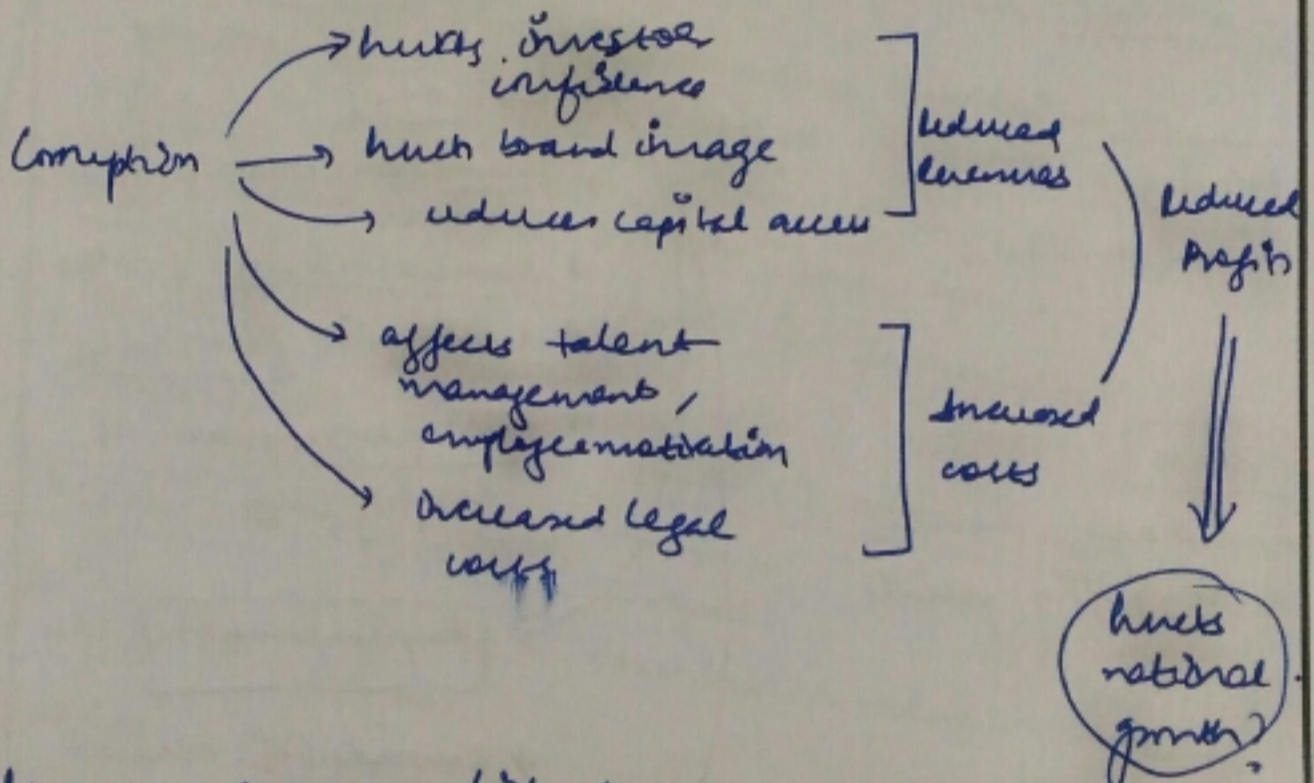 Corruption
hurts investor
confidence
hurts brand image
reduces capital access
affects talent
management,
employee motivation
increased legal
costs
Reduced
Revenues
Increased
costs
Reduced
Profits
hurts
national
growth